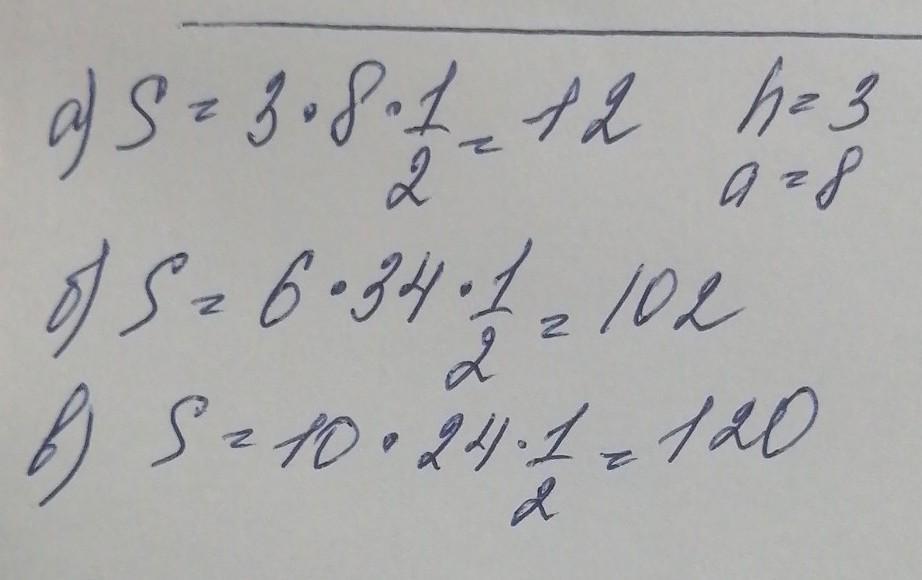 а) S = 3 · 8 · 1/2 = 12 h = 3
a = 8
б) S = 6 · 34 · 1/2 = 102
в) S = 10 · 24 · 1/2 = 120